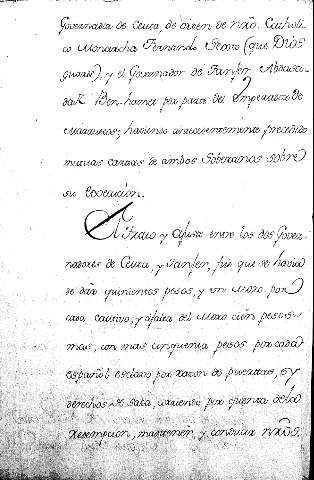 Governador de Ceuta, de orden de nrõ. Catholi-
co Monarcha Fernando Sexto (que Dios
guarde), y el Governador de Tanger
Ben-hamet por parte del Emperador de
Marruecos; haviendo antecedentemente precedido
mutuas cartas de ambos Soberanos sobre
su
El Trato y Ajuste entre los dos Gover-
nadores de Ceuta, y Tanger, fue que se havia
de dar quinientos pesos, y un Moro por
cada cautivo; y à falta del Moro cien pesos
mas, con mas cinquenta pesos por cada
español esclavo por razon de puertas, y
derechos de sala, corriendo por quenta de la
Redempcion, mantener, y conducir nrõs.